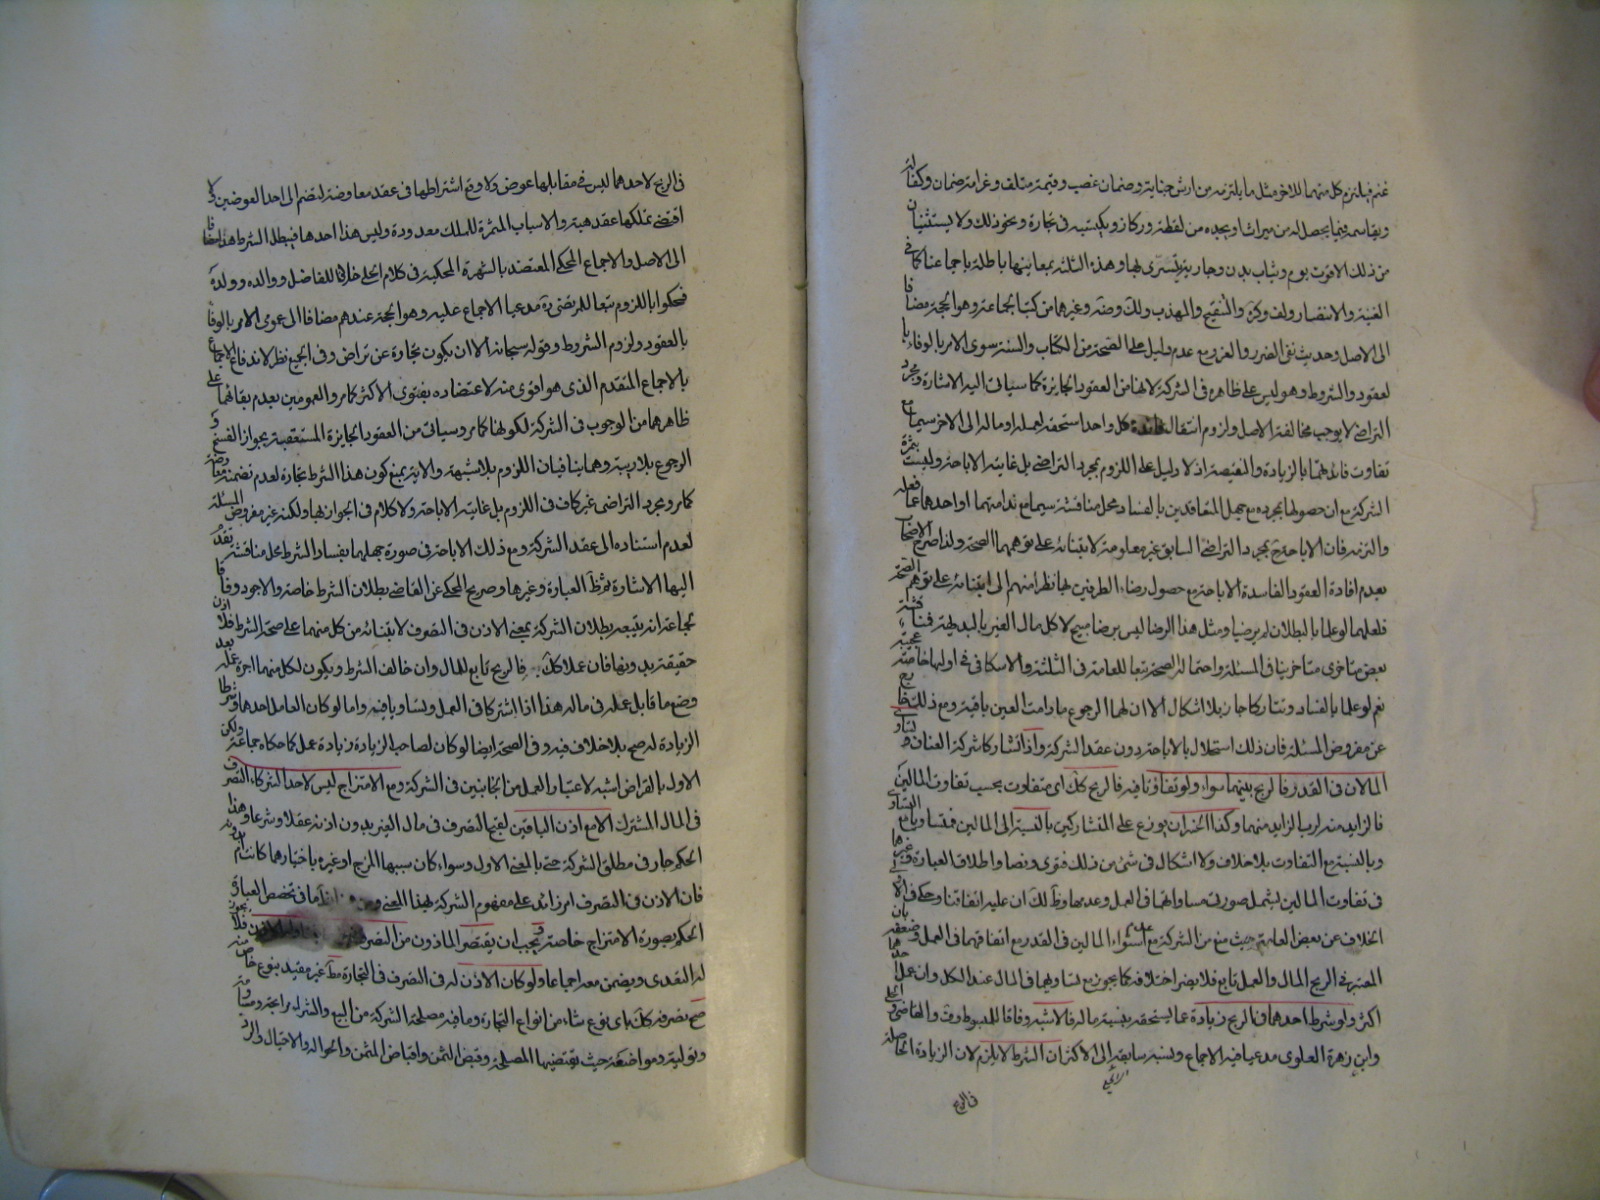 غنم فيلتزم كل منهما للاخر مثل ما يلتزمه من ارش جناية وضمان غصب وقيمة متلف وغرامة ضمان وكفالة
ويقاسمه فيما يحصل له من ميراث او يجده من لقطة وركاز ويكتسبه في تجارة ونحو ذلك ولا يستثنيان
من ذلك الا قوت يوم وثياب بدن وجارية يتسرى بها وهذه الثلثة بمعانيها باطلة باجماعنا كما في
الغنية والانتصار ولف وكرة والتنقيح والمهذب ولك وضه وغيرها من كتب الجماعة وهو الحجة مضافا
الى الاصل وحديث نفي الضرر والغرر مع عدم دليل على الصحة من الكتاب والسنة سوى الامر بالوفاء با
لعقود والشروط وهو ليس على ظاهره في الشركة لانها من العقود الجايزة كما سياتي اليه الاشارة ومجرد
التراضي لا يوجب مخالفة الاصل ولزوم انتقال فائدة كل واحد استحقه لعمله او ماله الى الاخر سيما مع
تفاوت فائدتهما بالزيادة والنقيصة اذ لا دليل على اللزوم بمجرد التراضي بل غايته الاباحة وليست بثمرة
الشركة مع ان حصولها بمجرده مع جهل المتعاقدين بالفساد محل مناقشة سيما مع ندامتهما او احدهما عما فعله
والتزمه فان الاباحة ح بمجرد التراضي السابق غير معلومة لابتنائه على توهمهما الصحة ولذا صرح الاصحاب
بعدم افادة العقود الفاسدة الاباحة مع حصول رضاء الطرفين بها نظرا منهم الى ابتنائه على توهم الصحة
فلعلهما لو علما بالبطلان لم يرضيا ومثل هذا الرضا ليس برضا مبيح لاكل مال الغير بالبديهة فمناقشة
بعض متاخري متاخرينا في المسئلة واحتماله الصحة تبعا للعامة في الثلثة والاسكافي في اولها خاصة عجيبة
نعم لو علما بالفساد وتتاركا جاز بلا اشكال الا ان لهما الرجوع ما دامت العين باقية ومع ذلك خارج
عن مفروض المسئلة فان ذلك استحلال بالاباحة دون عقد الشركة واذا تشاركا شركة العنان وتساوى
المالان في القدر فالربح بينهما سواء ولو تفاوتا فيه فالربح كك اي متفاوت بحسب تفاوت المالين
فالزايد منه لرب الزايد منهما وكذا الخسران يوزع على المتشاركين بالنسبة الى المالين فيتساويا مع التساوي
وبالنسبة مع التفاوت بلا خلاف ولا اشكال في شئ من ذلك فتوى ونصا واطلاق العبارة وغيرها
في تفاوت المالين يشمل صورتي مساواتهما في العمل وعدمها وظ لك ان عليه اتفاقنا وحكى
الخلاف عن بعض العامة حيث منع من الشركة مع استواء المالين في القدر مع اتفاقهما في العمل وضعفه بان
المعتبر في الربح المال والعمل تابع فلا يضر اختلافه كما يجوز مع تساويهما في المال عند الكل وان عمل احدهما
اكثر ولو شرط احدهما في الربح زيادة عما يستحقه بنسبة ماله فالاشبه وفاقا للمبسوط وق والقاضي والحلي
وابن زهرة العلوي مدعيا فيه الاجماع ونسبه سابقه الى الاكثر ان الشرط لا يلزم لان الزيادة الحاصلة
في الربح
في الربح لاحدهما ليس في مقابلها عوض ولا وقع اشتراطها في عقد معاوضة لتضم الى احد العوضين ولا
اقتضى تملكها عقد هبة والاسباب المثمرة للملك معدودة وليس هذا احدها فيبطل الشرط هذا مضافا
الى الاصل والاجماع المحكي المعتضد بالشهرة المحكية في كلام الحلي خلافا للفاضل ووالده وولده
فحكموا باللزوم تبعا للمرتضى ره مدعيا الاجماع عليه وهو الحجة عندهم مضافا الى عموم الامر بالوفاء
بالعقود ولزوم الشروط وقوله سبحانه الا ان يكون تجارة عن تراض وفي الجميع نظر لاندفاع الاجماع
بالاجماع المتقدم الذي هو اقوى منه لاعتضاده بفتوى الاكثر كما مر والعمومين بعدم بقائهما على
ظاهرهما من الوجوب في الشركة لكونها كما مر وسياتي من العقود الجايزة المستعقبة بجواز الفسخ و
الرجوع بلا ريبة وهما ينافيان اللزوم بلا شبهة والاية بمنع كون هذا الشرط تجارة لعدم تضمنه معاوضة
كما مر ومجرد التراضي غير كاف في اللزوم بل غايته الاباحة ولا كلام في الجواز بها ولكنه غير مفروض المسئلة
لعدم استناده الى عقد الشركة ومع ذلك الاباحة في صورة جهلهما بفساد الشرط محل مناقشة تقدم
اليها الاشارة ثم ظ العبارة وغيرها وصريح المحكي عن القاضي بطلان الشرط خاصة والاجود وفاقا
لجماعة انه يتبعه بطلان الشركة بمعنى الاذن في التصرف لابتنائه من كل منهما على صحة الشرط فلا اذن
حقيقة بدونها فان عملا كك فالربح تابع للمال وان خالف الشرط ويكون لكل منهما اجرة عمله بعد
وضع ما قابل عمله في ماله هذا اذا اشتركا في العمل وتساويا فيه واما لو كان العامل احدهما وشرطا
الزيادة له صح بلا خلاف فيه وفي الصحة ايضا لو كان لصاحب الزيادة زيادة عمل كما حكاه جماعة ولكن
الاول بالقراض اشبه لاعتبار العمل من الجانبين في الشركة ومع الامتزاج ليس لاحد الشركاء التصرف
في المال المشترك الا مع اذن الباقين لقبح التصرف في مال الغير بدون اذنه عقلا وشرعا وهذا
الحكم جار في مطلق الشركة حتى بالمعنى الاول وسواء كان سببها المزج او غيره باختيارهما كانت ام بدونه
فان الاذن في التصرف امر زائد على مفهوم الشركة بهذا المعنى ومن في تخصيص العبارة
الحكم بصورة الامتزاج خاصة ويجب ان يقتصر الماذون من التصرف فلا يجوز
له التعدي ويضمن معه اجماعا ولو كان الاذن له في التصرف في التجارة مط غير مقيد بنوع خاص منه
صح تصرفه كك باي نوع شاء من انواع التجارة وما فيه مصلحة الشركة من البيع والشراء مرابحة ومساومة
وتولية ومواضعة حيث يقتضيها المصلحة وقبض الثمن واقباض المثمن والحوالة والاحتيال والرد